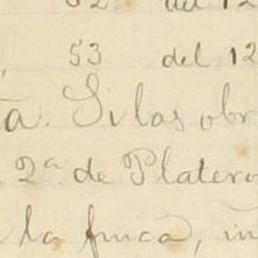 52 del 12
53 del 12
ta. Si las obr
2ª de Platero
la finca, in